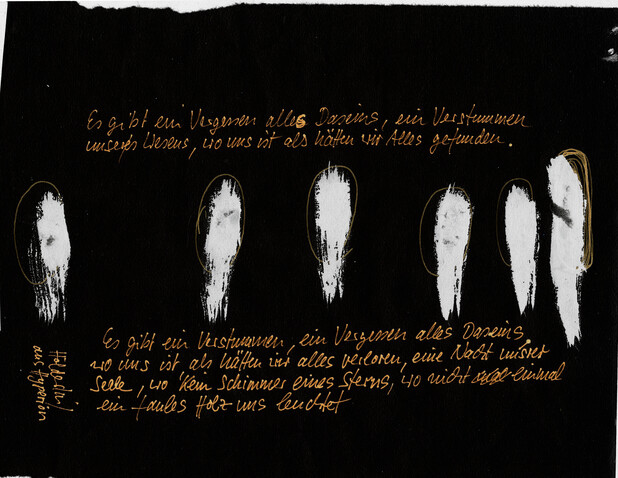 Es gibt ein Vergessen alles Daseins, ein Verstummen
unseres Wesens, wo uns ist als hätten wir Alles gefunden.
Es gibt ein Verstummen, ein Vergessen alles Daseins,
wo uns ist als hätten wir alles verloren, eine Nacht unsrer
Seele, wo kein Schimmer eines Sterns, wo nicht einmal
ein faules Holz uns leuchtet
Hölderlin
aus Hyperion